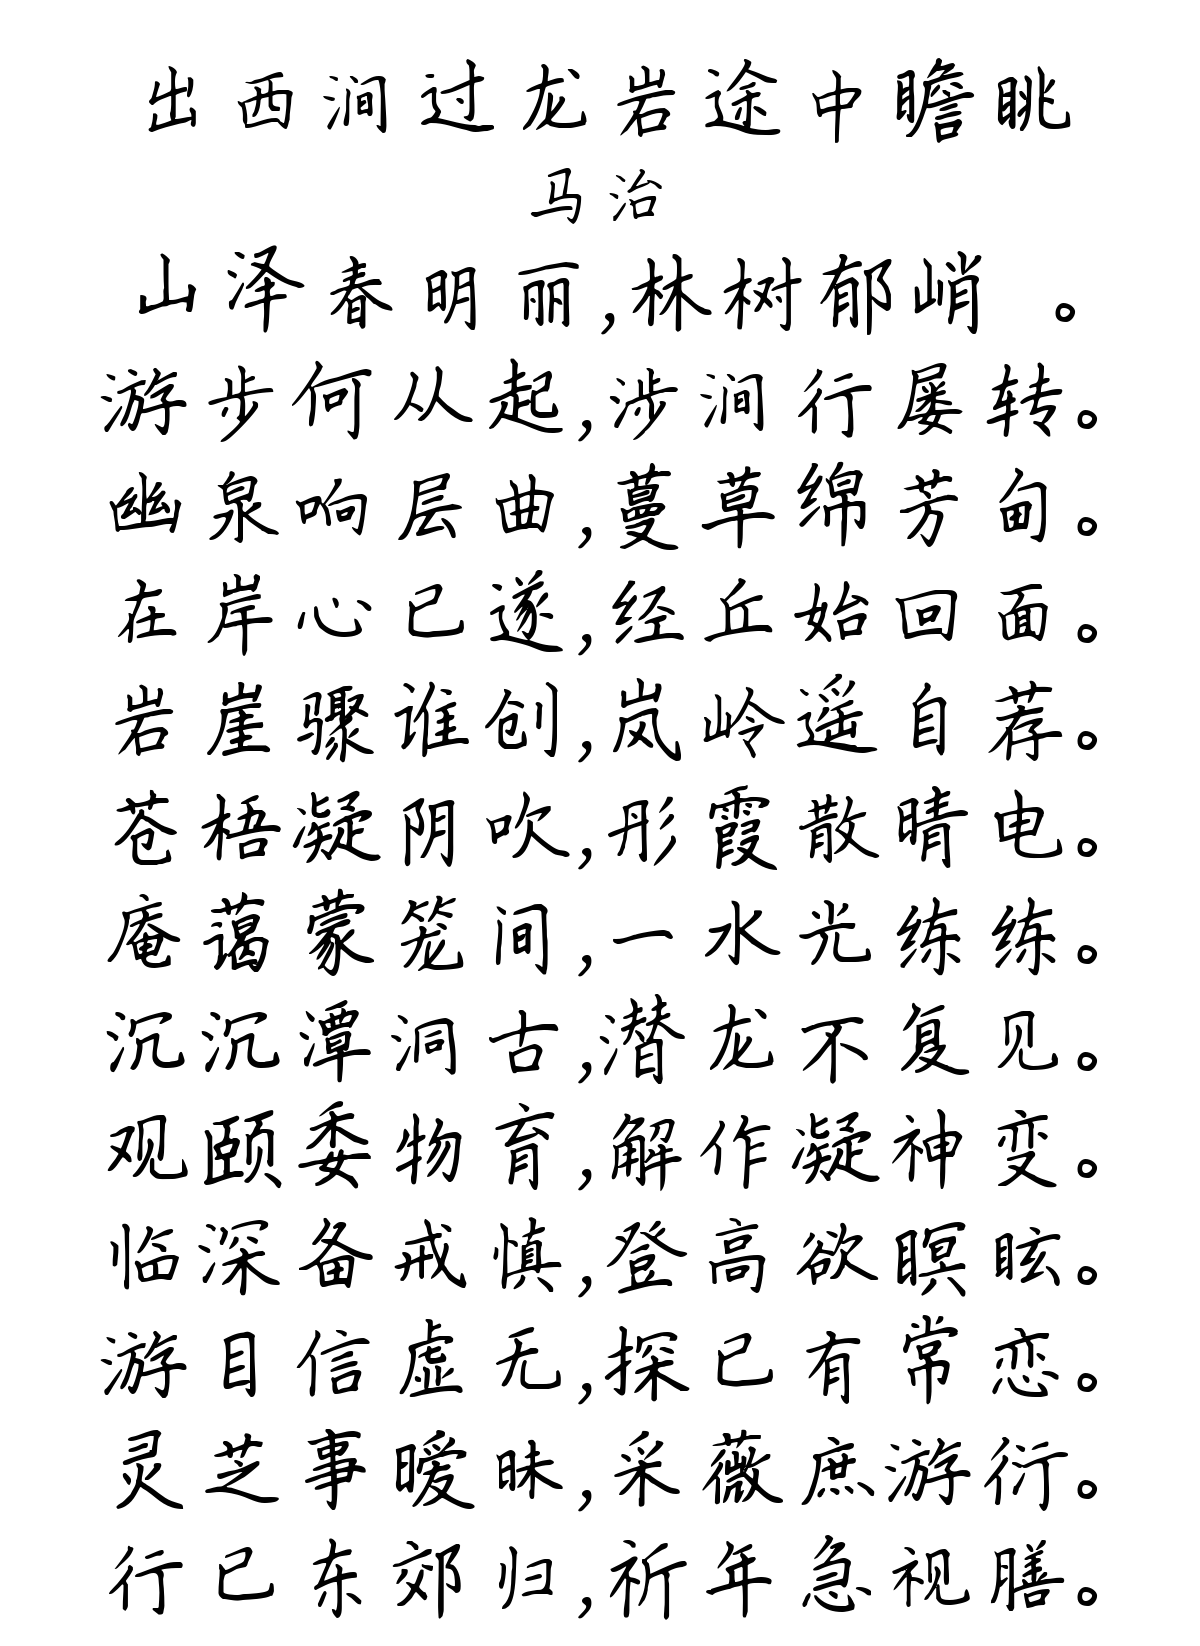 出西涧过龙岩途中瞻眺
马治
山泽春明丽,林树郁峭 。
游步何从起,涉涧行屡转。
幽泉响层曲,蔓草绵芳甸。
在岸心已遂,经丘始回面。
岩崖骤谁创,岚岭遥自荐。
苍梧凝阴吹,彤霞散晴电。
庵蔼蒙笼间,一水光练练。
沉沉潭洞古,潜龙不复见。
观颐委物育,解作凝神变。
临深备戒慎,登高欲瞑眩。
游目信虚无,探已有常恋。
灵芝事暧昧,采薇庶游衍。
行已东郊归,祈年急视膳。